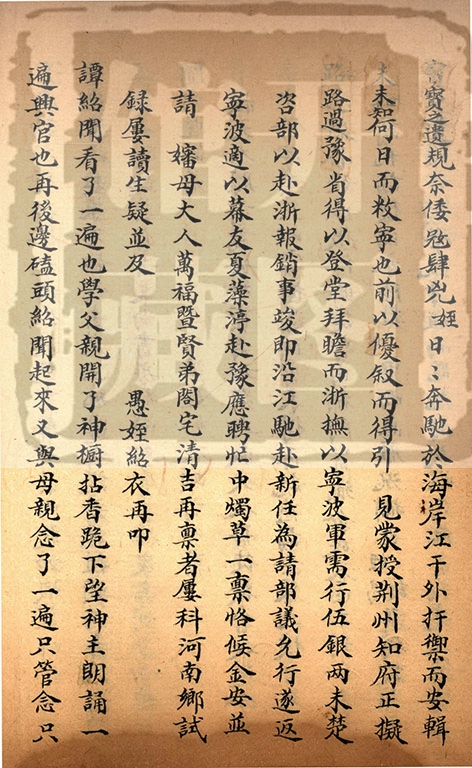 寶之遺規奈倭寇肆兇姪日〻奔馳於海岸江干外扞禦而安輯
未知何日而敉寧也前以優叙而得引 見蒙授荆州知府正擬
路過豫省得以登堂拜瞻而浙撫以寧波軍需行伍銀两未楚
咨部以赴浙報銷事竣即沿江馳赴新任為請部議允行遂返
寧波適以幕友夏藻渟赴豫應聘忙中燭草一禀恪候金安並
請 嬸母大人萬福暨賢弟閤宅清吉再禀者屢科河南鄉試
録屢讀生疑並及 愚姪紹衣再叩
譚紹聞看了一遍也學父親開了神橱拈香跪下望神主朗誦一
遍興官也再後邊磕頭紹聞起來又與母親念了一遍只管念只